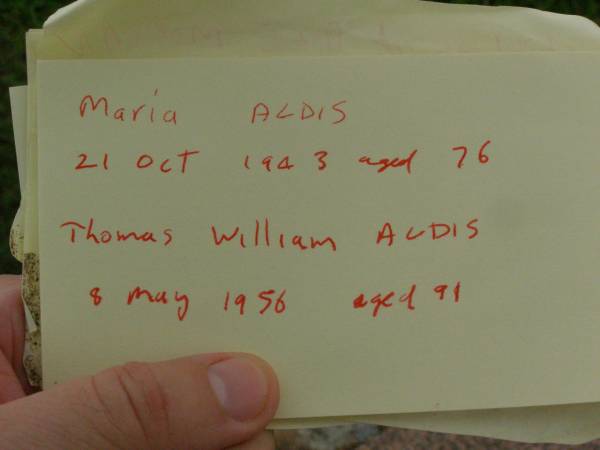 Maria ALDIS
21 Oct 1943 aged 76
Thomas William ALDIS
8 may 1956 aged 91